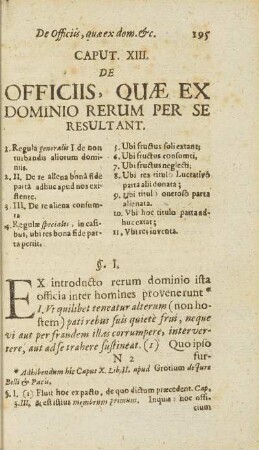 De Officiis, quæ ex dom. &c. 195
CAPUT. XIII.
DE
OFFICIIS, QUÆ EX
DOMINIO RERUM PER SE
RESULTANT.
1. Regula generalis I de non
turbandis aliorum domi-
niis.
2. II. De re aliena bonâ fide
partâ adhuc apud nos exi-
stente.
3. III. De re aliena consum-
ta
4. Regulæ speciales, in casi-
bus, ubi res bona fide par-
ta periit.
5. Ubi fructus soli extant;
6. Ubi fructus consumti,
7. Ubi fructus neglecti,
8. Ubi res titulô Lucrativô
parta alii donata;
9. Ubi titulô onerosô parta
alienata.
10. Ubi hoc titulo parta ad-
huc extat;
11, Ubi rei inventa.
§. I.
EX introducto rerum dominio ista
officia inter homines provenerunt *
I, Ut quilibet teneatur alterum (non ho-
stem) pati rebus suis quietè frui, neque
vi aut per fraudem illas corrumpere, interver-
tere, aut ad se trahere sustineat. (1) Quo ipso
N 2 fur-
* Adhibendum hîc Caput X. Lib. II. apud Grotium de Jure
Belli & Pacis,
§. I, (1) Fluit hoc ex pacto, de quo dictum præcedent. Cap,
§. III, & est istius membrum primum. Inquæ: hoc offi-
cium